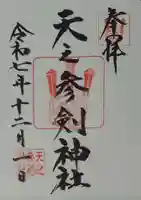 奉拝
天之参剣神社
令和七年十二月一日
天之